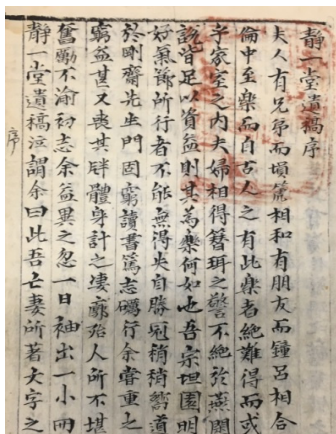 靜一堂遺稿序
夫人有兄弟而塤箎相和有朋友而鐘呂相合
倫中至樂而自古人之有此樂者絶難得而或
乎家室之內夫婦相得簪珥之警不絶於燕閨
說皆足以資益則其爲樂何如也吾宗坦園明
好氣節所行者不能無得失自勝冠稍稍嚮道
於剛齋先生門固窮讀書篤志礪行余嘗重之
窮益甚又喪其牉體身計之凄廓殆人所不堪
奮勵不渝初志余益異之忽一日袖出一小冊
靜一堂遺稿泣謂余曰此吾亡妻所著大字之
序